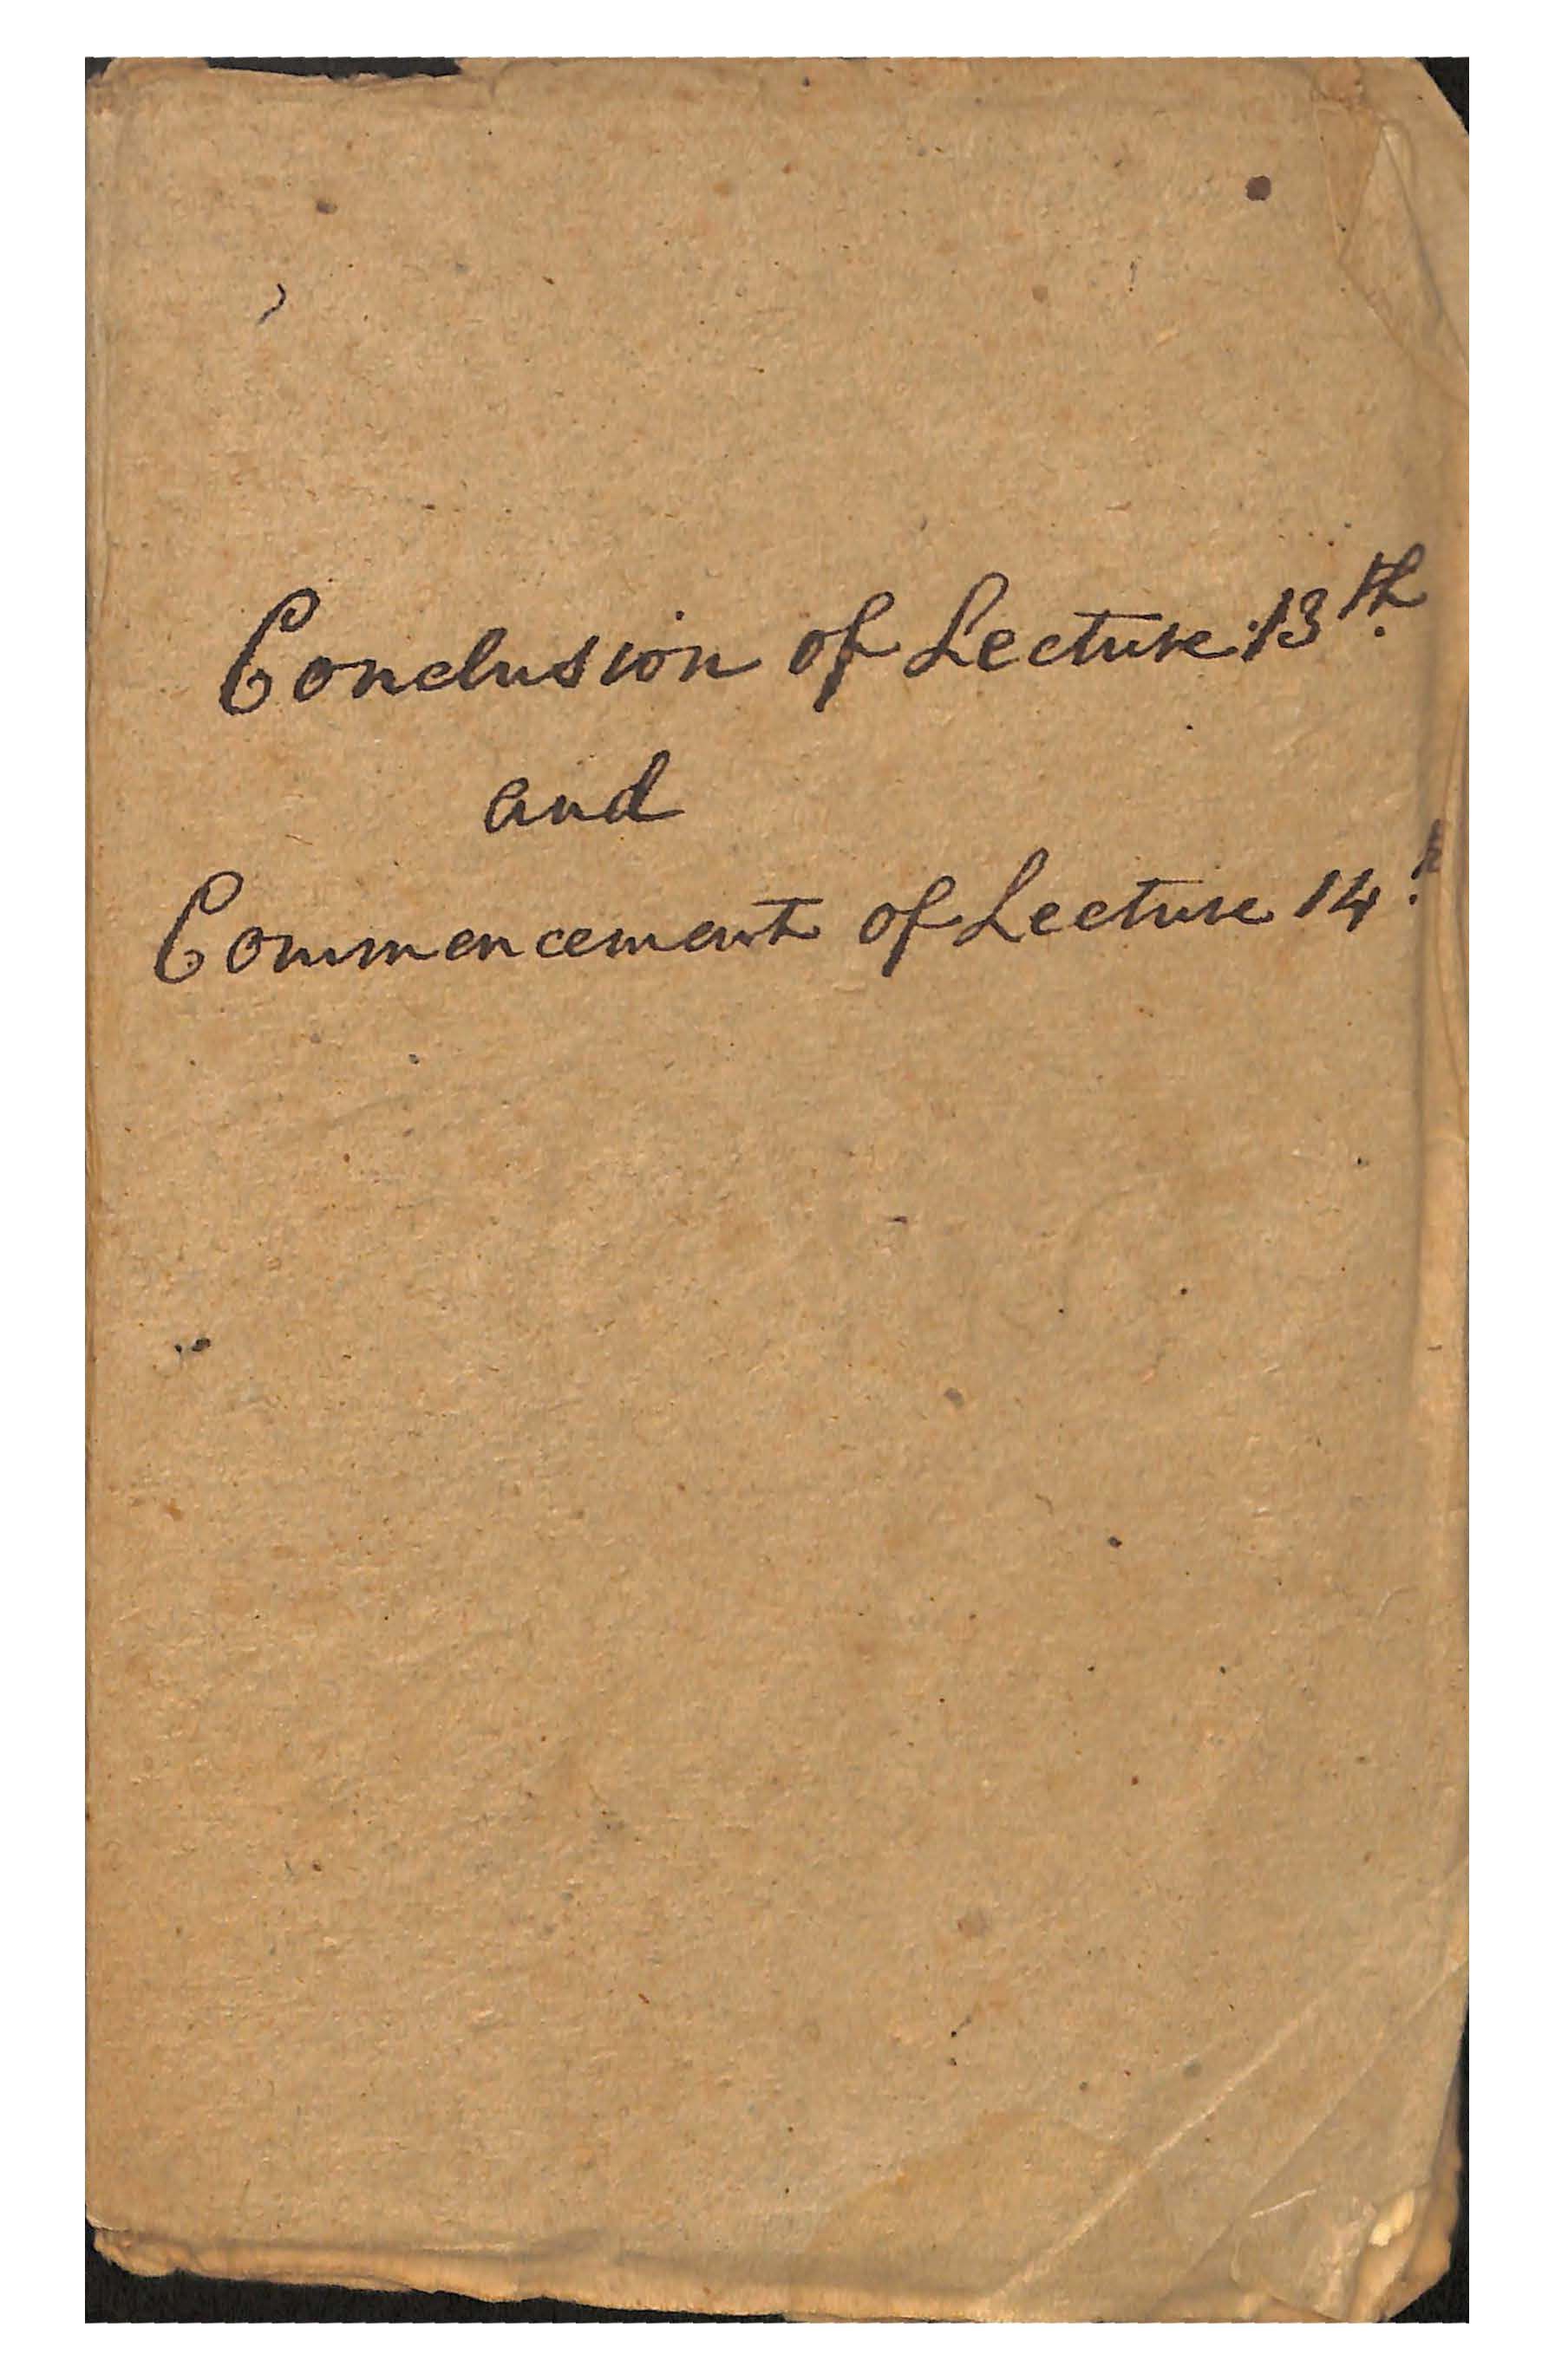 Conclusion of Lecture 13th
and
Commencement of Lecture 14th